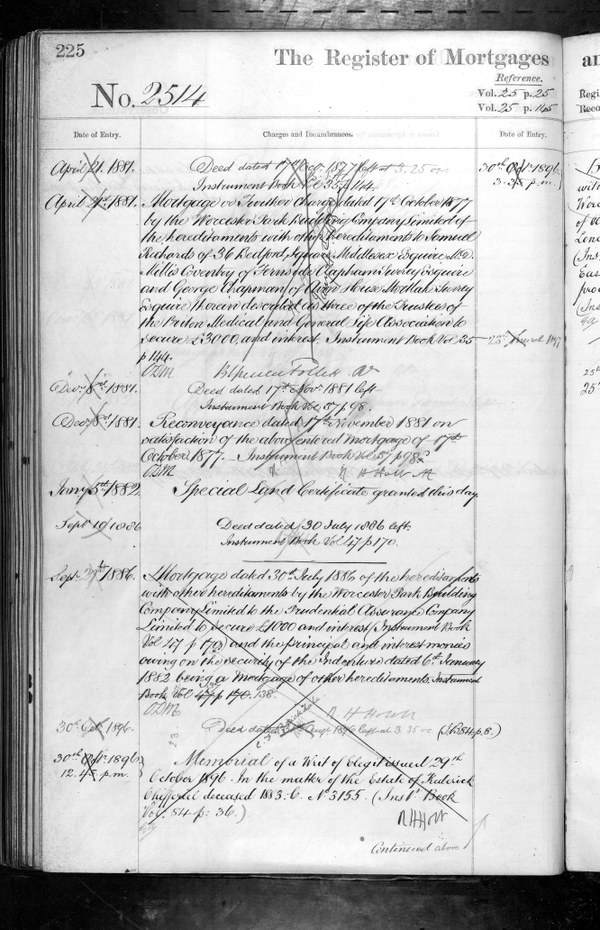 225
The Register of Mortgages
an
Reference.
No. 2514
Vol. 25 p. 25
Vol. 25 p. 165
Date of Entry.
Charges and Incumbrances.
Date of Entry.
April 21. 1881.
Deed dated 17th 1877 left at 3.25
30th Oct 1896
Instrument Book Vol 35 p 144.
p.m.
April 21st 1881.
Mortgage or Further Charge dated 17th October 1877
by the Worcester Park Building Company Limited of
the hereditaments with other hereditaments to Samuel
Richards of 36 Bedford Square Middlesex Esquire
Coventry of Clapham Surrey Esquire
and George Chapman of House Mortlake Surrey
Esquire therein described as three of the Trustees of
the Briton Medical and General Life Association to
secure £3000 and interest. Instrument Book Vol 35
p 144.
Decr 8th 1881.
Deed dated 17th Novr 1881 left
Instrument Book Vol 37 p 98.
Decr 8th 1881.
Reconveyance dated 17th November 1881 on
satisfaction of the above entered Mortgage of 17th
October 1877. Instrument Book Vol 37 p 98
R H Holt
Jany 5th 1882.
Special Land Certificate granted this day
Sept 10 1886
Deed dated 30 July 1886 left.
Instrument Book Vol 47 p 170.
Sept 1886.
Mortgage dated 30th July 1886 of the hereditaments
with other hereditaments by the Worcester Park Building
Company Limited to the Prudential Assurance Company
Limited to secure £1000 and interest Instrument Book
Vol 47 p 170 and the principal and interest monies
owing on the security of the Indenture dated 6th January
1882 being a Mortgage of other hereditaments Instrument
Book Vol 47 p 170. 138.
R H Holt
30th Oct 1896.
Deed dated left at 3.35 (Vol. 84 p. 8.)
30th Octr 1896
Memorial of a Writ of Elegit issued 29th
12.45 p.m.
October 1896. In the matter of the Estate of Frederick
deceased 1883. C. No 3155. (Inst Book
Vol. 84 p. 36.)
R H Holt
Continued above